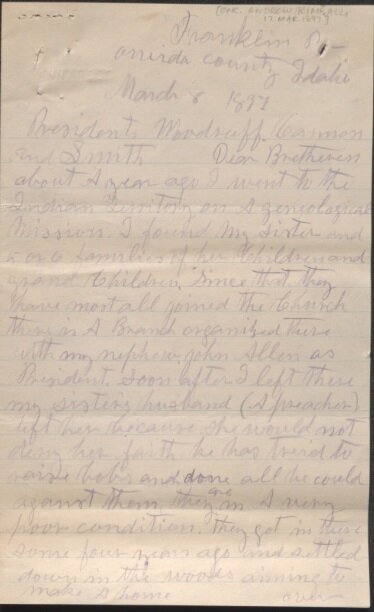 [OK. ANDREW KIMBALL
17 MAR 1897]
Franklin P.O.
Oneida County Idaho
March 8 1897
Presidents Woodruff, Cannon
and Smith Dear Bretheren
about A year ago I went to the
Indian Territory on A geneological
Mission. I found My Sister and
5 or 6 families of her Children and
grand Children. Since that they
have most all joined the Church
there is A Branch organized there
with my nephew john Allen as
President. Soon after I left there
my sisters husband (A preacher)
left her because she would not
deny her faith he has tried to
raise mobs and done all he could
against them they are in A very
poor condition. they got in there
some four years ago and settled
down in the woods aiming to
make A home over—